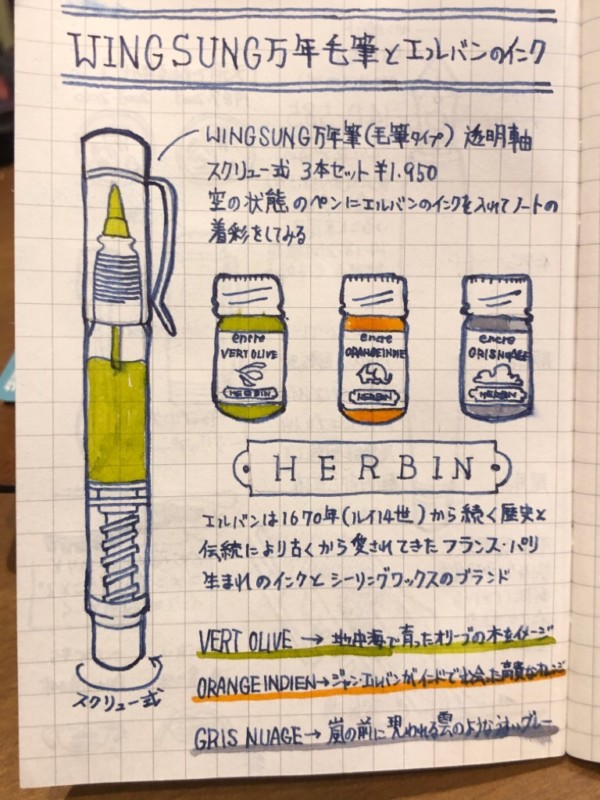 WINGSUNG万年毛筆とエルバンのインク
WINGSUNG万年筆(毛筆タイプ) 透明軸
スクリュー式 3本セット ¥1.950
空の状態のペンにエルバンのインクを入れてノートの
着彩をしてみる
encre
VERT OLIVE
HERBIN
encre
ORANGE INDIE
HERBIN
encre
GRIS NUAGE
HERBIN
HERBIN
エルバンは1670年(ルイ14世)から続く歴史と
伝統により古くから愛されてきたフランス・パリ
生まれのインクとシーリングワックスのブランド
VERT OLIVE → 地中海で育ったオリーブの木をイメージ
ORANGE INDIEN→ジャン・エルバンがインドで出会った高貴なオレンジ
GRIS NUAGE→ 嵐の前に現われる雲のようなグレー
スクリュー式